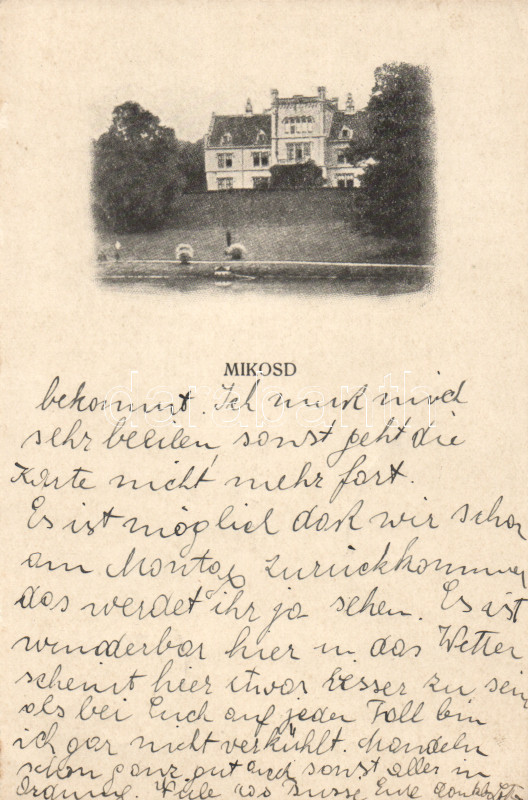 MIKOSD
bekommt. Ich muss mich
sehr beeilen, sonst geht die
Karte nicht mehr fort.
Es ist möglich dass wir schon
am Montag zurückkommen
das werdet ihr ja sehen. Es ist
wunderbar hier u. das Wetter
scheint hier etwas besser zu sein
als bei Euch auf jeden Fall bin
ich gar nicht verkühlt. Mandeln
schon ganz gut und sonst alles in
Ordnung. Viele